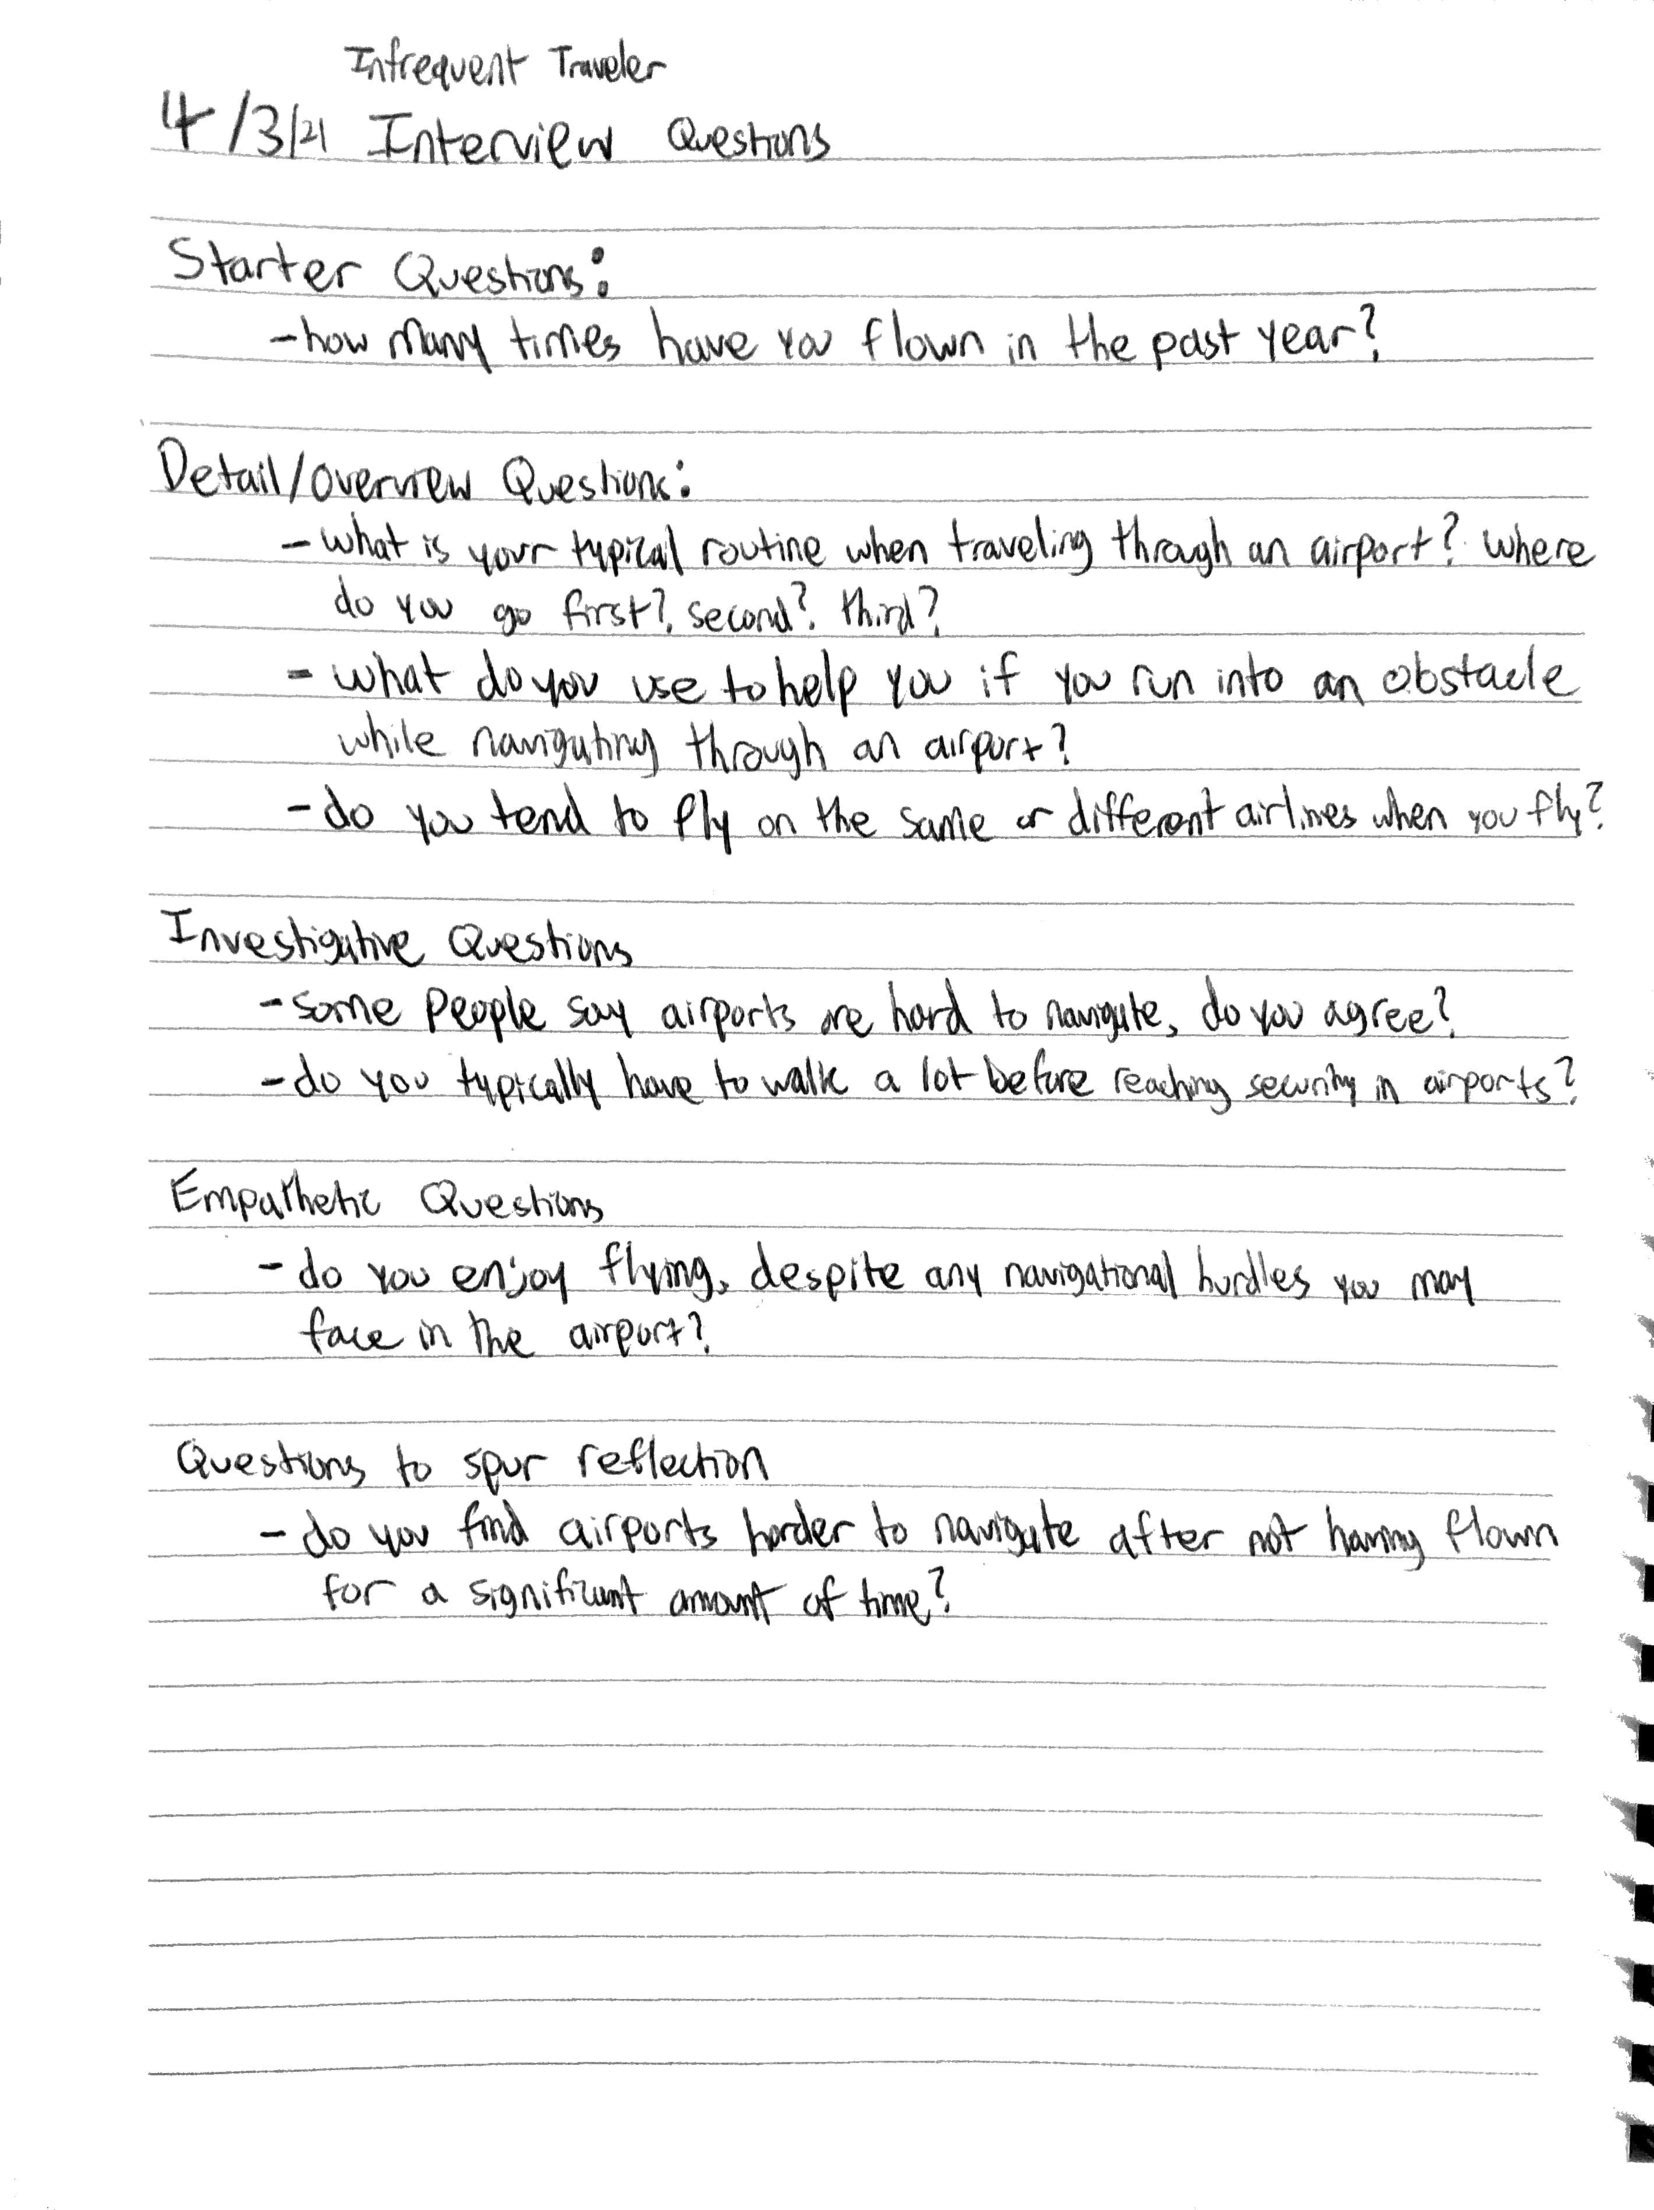 Infrequent Traveler
4/3/21 Interview Questions
Starter Questions:
- how many times have you flown in the past year?
Detail/overview Questions:
- what is your typical routine when traveling through an airport? where
do you go first? second? third?
- what do you use to help you if you run into an obstacle
while navigating through an airport?
- do you tend to fly on the same or different airlines when you fly?
Investigative Questions
- some people say airports are hard to navigate, do you agree?
- do you typically have to walk a lot before reaching security in airports?
Empathetic Questions
- do you enjoy flying, despite any navigational hurdles you may
face in the airport?
Questions to spur reflection
- do you find airports harder to navigate after not having flown
for a significant amount of time?